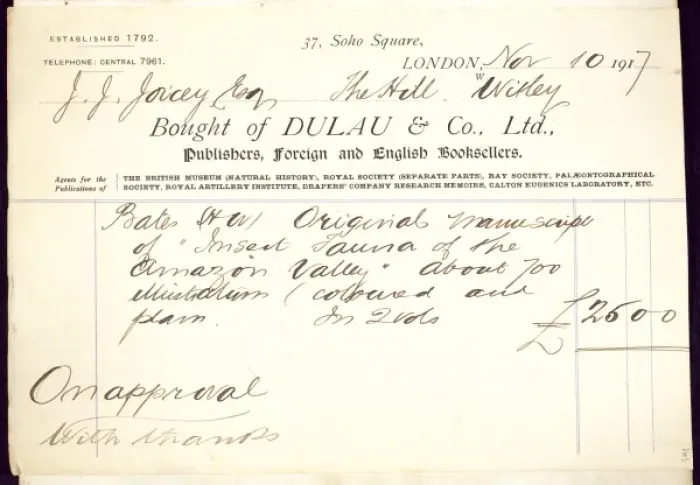 ESTABLISHED 1792.
TELEPHONE: CENTRAL 7961.
37, Soho Square,
LONDON, W Nov 10 1917
J. J. Joicey, Esq The Hill. Witley
Bought of DULAU & Co., Ltd.,
Publishers, Foreign and English Booksellers.
Agents for the Publications of
THE BRITISH MUSEUM (NATURAL HISTORY), ROYAL SOCIETY (SEPARATE PARTS), RAY SOCIETY, PALÆONTOGRAPHICAL
SOCIETY, ROYAL ARTILLERY INSTITUTE, DRAPERS' COMPANY RESEARCH MEMOIRS, CALTON EUGENICS LABORATORY, ETC.
Bates (H W) Original Manuscript
of "Insect Fauna of the
Amazon Valley" about 700
illustrations (coloured and
plain. In 2 vols £ 26 0 0
On approval
With thanks